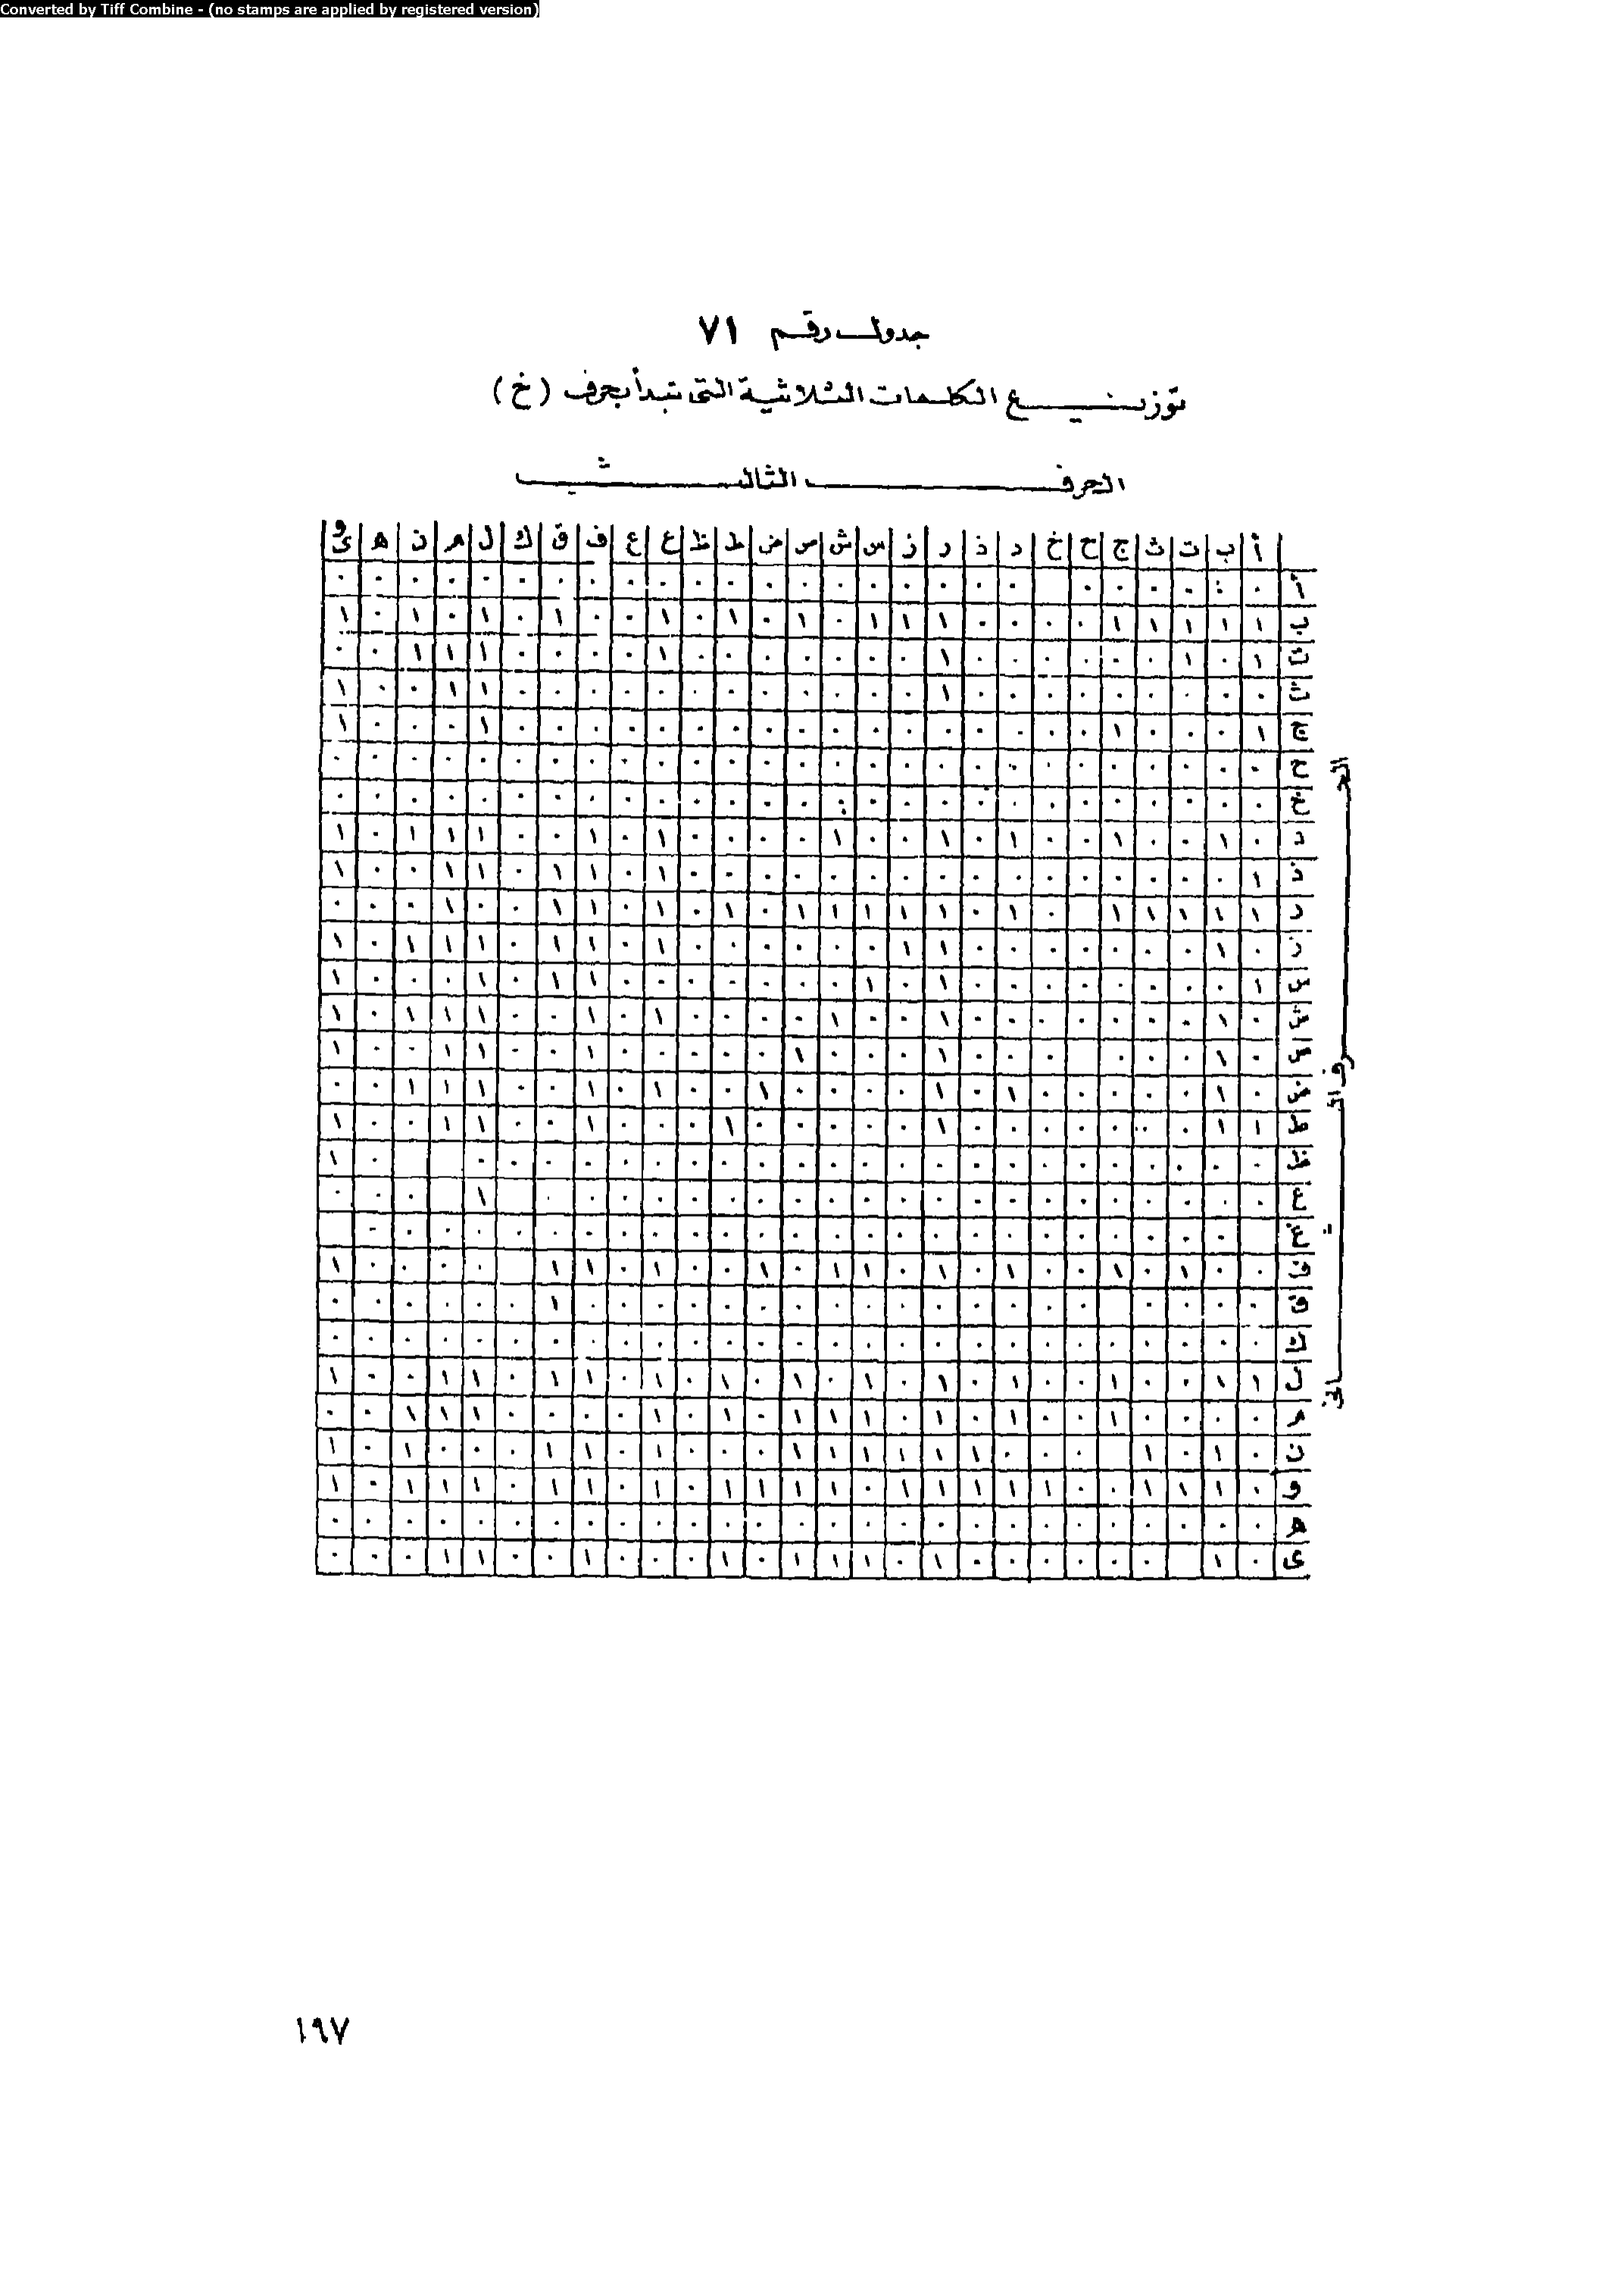 Converted by Tiff Combine - (no stamps are applied by registered version)
جدول رقم ٧١
توزيع الكلمات الثلاثية التى تبدأ بحرف (خ)
الحرف الثالث
أ ب ت ث ج ح خ د ذ ر ز س ش ص ض ط ظ ع غ ف ق ك ل م ن ه و ى
أ ٠ ٠ ٠ ٠ ٠ ٠ ٠ ٠ ٠ ٠ ٠ ٠ ٠ ٠ ٠ ٠ ٠ ٠ ٠ ٠ ٠ ٠ ٠ ٠ ٠ ٠
ب ١ ١ ١ ١ ١ ٠ ٠ ٠ ٠ ١ ١ ١ ٠ ١ ٠ ١ ٠ ١ ٠ ٠ ١ ٠ ١ ٠ ١ ٠ ١
ت ١ ٠ ١ ٠ ٠ ٠ ٠ ٠ ٠ ١ ٠ ٠ ٠ ٠ ٠ ٠ ٠ ١ ٠ ٠ ٠ ٠ ١ ١ ١ ٠ ٠
ث ٠ ٠ ٠ ٠ ٠ ٠ ٠ ٠ ٠ ١ ٠ ٠ ٠ ٠ ٠ ٠ ٠ ٠ ٠ ٠ ٠ ٠ ١ ١ ٠ ٠ ١
ج ١ ٠ ٠ ٠ ١ ٠ ٠ ٠ ٠ ٠ ٠ ٠ ٠ ٠ ٠ ٠ ٠ ٠ ٠ ٠ ٠ ٠ ١ ٠ ٠ ٠ ١
ح ٠ ٠ ٠ ٠ ٠ ٠ ٠ ٠ ٠ ٠ ٠ ٠ ٠ ٠ ٠ ٠ ٠ ٠ ٠ ٠ ٠ ٠ ٠ ٠ ٠ ٠ ٠
خ ٠ ٠ ٠ ٠ ٠ ٠ ٠ ٠ ٠ ٠ ٠ ٠ ٠ ٠ ٠ ٠ ٠ ٠ ٠ ٠ ٠ ٠ ٠ ٠ ٠ ٠ ٠
د ٠ ١ ٠ ٠ ١ ٠ ٠ ١ ٠ ١ ٠ ٠ ١ ٠ ٠ ٠ ٠ ١ ٠ ١ ٠ ٠ ١ ١ ١ ٠ ١
ذ ١ ٠ ٠ ٠ ٠ ٠ ٠ ٠ ٠ ٠ ٠ ٠ ٠ ٠ ٠ ٠ ٠ ١ ٠ ١ ١ ٠ ١ ١ ٠ ٠ ١
ر ١ ١ ١ ١ ١ ٠ ١ ٠ ١ ١ ١ ١ ١ ٠ ١ ٠ ١ ٠ ١ ١ ٠ ٠ ١ ٠ ٠ ٠
ز ٠ ١ ٠ ٠ ٠ ٠ ٠ ٠ ٠ ١ ١ ٠ ٠ ٠ ٠ ٠ ٠ ١ ٠ ١ ١ ٠ ١ ١ ١ ٠ ١
س ١ ٠ ٠ ٠ ٠ ٠ ٠ ٠ ٠ ١ ٠ ١ ٠ ٠ ٠ ٠ ٠ ٠ ٠ ١ ١ ٠ ١ ٠ ٠ ٠ ١
ش ٠ ١ ٠ ٠ ٠ ٠ ٠ ٠ ٠ ١ ٠ ٠ ١ ٠ ٠ ٠ ٠ ١ ٠ ١ ٠ ٠ ١ ١ ١ ٠ ١
ص ٠ ١ ٠ ٠ ٠ ٠ ٠ ٠ ١ ٠ ٠ ٠ ١ ٠ ٠ ٠ ٠ ٠ ١ ٠ ٠ ١ ١ ٠ ٠ ١
ض ٠ ١ ٠ ٠ ٠ ٠ ٠ ١ ٠ ١ ٠ ٠ ٠ ٠ ١ ٠ ٠ ١ ٠ ١ ٠ ٠ ١ ١ ١ ٠ ٠
ط ١ ١ ٠ ٠ ٠ ٠ ٠ ٠ ٠ ١ ٠ ٠ ٠ ٠ ٠ ١ ٠ ٠ ٠ ١ ٠ ٠ ١ ١ ٠ ٠ ١
ظ ٠ ٠ ٠ ٠ ٠ ٠ ٠ ٠ ٠ ٠ ٠ ٠ ٠ ٠ ٠ ٠ ٠ ٠ ٠ ٠ ٠ ٠ ٠ ٠ ١
ع ٠ ٠ ٠ ٠ ٠ ٠ ٠ ٠ ٠ ٠ ٠ ٠ ٠ ٠ ٠ ٠ ٠ ٠ ٠ ٠ ٠ ١ ٠ ٠ ٠
غ ٠ ٠ ٠ ٠ ٠ ٠ ٠ ٠ ٠ ٠ ٠ ٠ ٠ ٠ ٠ ٠ ٠ ٠ ٠ ٠ ٠ ٠ ٠ ٠ ٠
ف ٠ ٠ ١ ٠ ١ ٠ ٠ ١ ٠ ١ ٠ ١ ١ ٠ ١ ٠ ٠ ١ ٠ ١ ١ ٠ ٠ ٠ ٠ ١
ق ٠ ٠ ٠ ٠ ٠ ٠ ٠ ٠ ٠ ٠ ٠ ٠ ٠ ٠ ٠ ٠ ٠ ٠ ٠ ١ ٠ ٠ ٠ ٠ ٠ ٠
ك ٠ ٠ ٠ ٠ ٠ ٠ ٠ ٠ ٠ ٠ ٠ ٠ ٠ ٠ ٠ ٠ ٠ ٠ ٠ ٠ ٠ ٠ ٠ ٠ ٠ ٠ ٠
ل ١ ١ ٠ ٠ ١ ٠ ٠ ١ ٠ ١ ٠ ١ ٠ ١ ٠ ١ ٠ ١ ٠ ١ ١ ٠ ١ ١ ٠ ٠ ١
م ٠ ٠ ٠ ٠ ١ ٠ ٠ ١ ٠ ١ ٠ ١ ١ ١ ٠ ١ ٠ ١ ٠ ٠ ٠ ٠ ١ ١ ١ ٠ ٠
ن ٠ ١ ٠ ١ ٠ ٠ ٠ ٠ ١ ١ ١ ١ ١ ١ ٠ ٠ ٠ ١ ٠ ١ ١ ٠ ٠ ٠ ١ ٠ ١
و ٠ ١ ١ ١ ٠ ٠ ١ ١ ١ ١ ١ ٠ ١ ١ ١ ١ ٠ ١ ٠ ١ ١ ٠ ١ ١ ١ ٠ ١
ه ٠ ٠ ٠ ٠ ٠ ٠ ٠ ٠ ٠ ٠ ٠ ٠ ٠ ٠ ٠ ٠ ٠ ٠ ٠ ٠ ٠ ٠ ٠ ٠ ٠ ٠ ٠
ى ٠ ١ ٠ ٠ ٠ ٠ ٠ ٠ ١ ٠ ١ ١ ١ ٠ ١ ٠ ٠ ٠ ١ ٠ ٠ ١ ١ ٠ ٠ ٠
الحرف الثانى
١٩٧